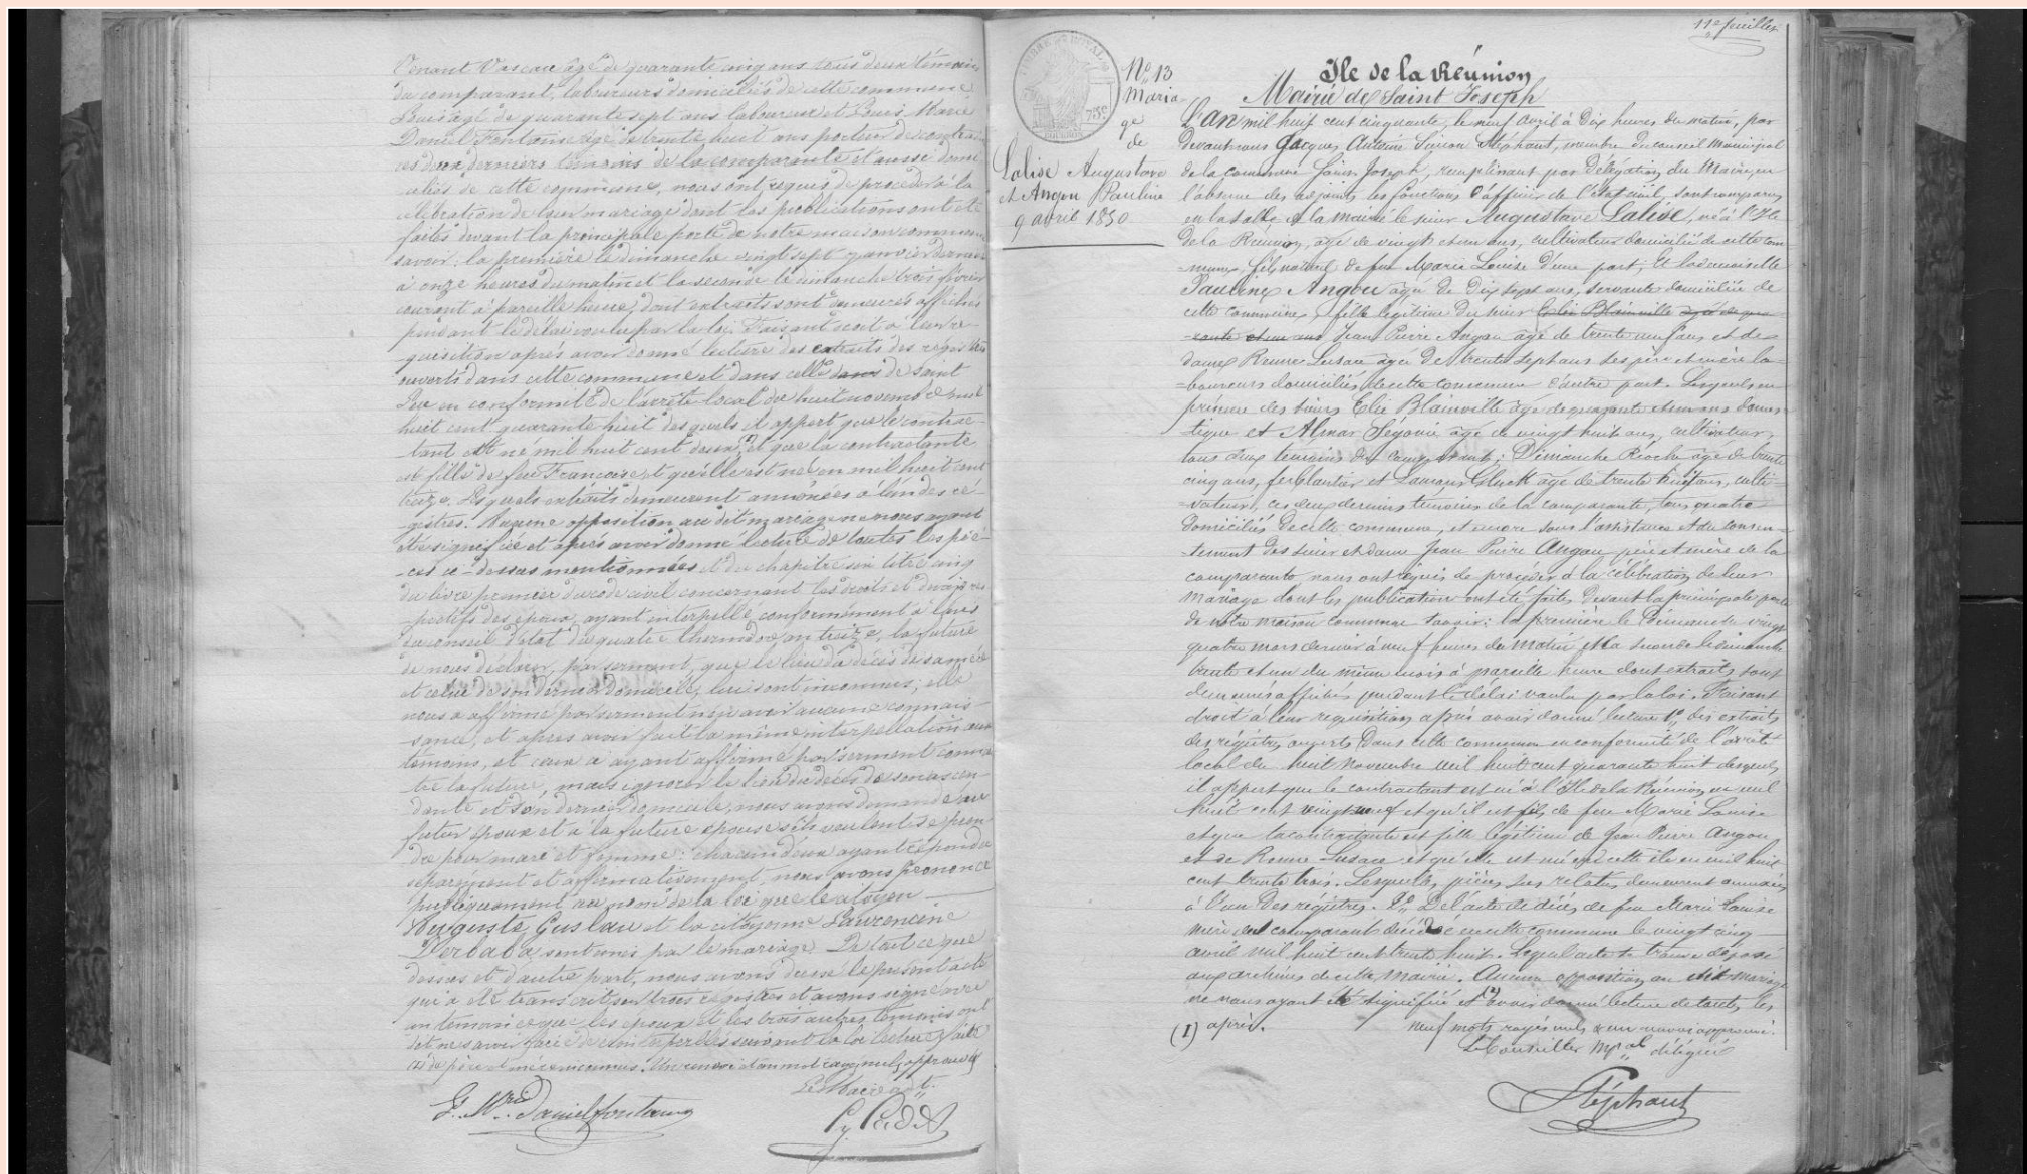 Vascau âgé de quarante cinq ans tous deux témoins
du comparant, laboureurs domiciliés de cette commune
Louis âgé de quarante sept ans laboureur et Louis Marie
Daniel Fontaine âgé de trente huit ans
ces deux derniers témoins de la comparante et aussi domi-
ciliés de cette commune, nous ont requis de procéder à la
célébration de leur mariage dont les publications ont été
faites devant la principale porte de notre maison commune
savoir: la première le dimanche vingt sept janvier dernier
à onze heures du matin et la seconde le dimanche trois février
courant à pareille heure, dont extraits sont demeurés affichés
pendant le délai voulu par la loi. Faisant droit à leur ré-
quisition après avoir donné lecture des extraits des registres
ouverts dans cette commune et dans celle de Saint
en conformité de l'arrêté local du huit novembre mil
huit cent quarante huit desquels il appert que le contrac-
tant est né mil huit cent deux (1) et que la contractante
est fille de feu Françoise et qu'elle est née en mil huit cent
treize. Lesquels extraits demeurent annexés à l'un des ré-
-gistres. Aucune opposition au dit mariage ne nous ayant
été signifiée et après avoir donné lecture de toutes les piè-
-ces ci-dessus mentionnées et du chapitre six titre cinq
du livre premier du code civil concernant les droits et devoirs res-
pectifs des époux, ayant interpellé conformément à l'avis
du conseil d'état du quatre thermidor an treize, la future
de nous déclarer, par serment, que le lieu du décès de sa mère
et celui de son dernier domicile, lui sont inconnus; elle
nous a affirmé par serment n'en avoir aucune connais-
-sance, et après avoir fait la même interpellation aux
témoins, et ceux-ci ayant affirmé par serment
la future, mais ignorer le lieu du décès de son ascen-
dante et son dernier domicile, nous avons demandé au
futur époux et à la future épouse s'ils veulent se pren-
dre pour mari et femme: chacun d'eux ayant répondu
séparément et affirmativement, nous avons prononcé
publiquement au nom de la loi que le citoyen
Auguste Guslau et la citoyenne Laurencine
Derbaba sont unis par le mariage. De tout ce que
dessus et d'autre part, nous avons dressé le présent acte
qui a été transcrit sur trois registres et avons signé avec
un témoin ce que les époux et les trois autres témoins ont
dit ne savoir faire de ce interpellés suivant la loi lecture faite
(1) de père et mère inconnus. Un renvoi et un mot rayé nul approuvés
Le Maire adt.
G. Mrie Daniel fontaine
11e feuillet
No 13
Maria-
ge
de
Lalise Augustave
et Angou Pauline
9 avril 1850
Ile de la Réunion
Mairie de Saint Joseph
L'an mil huit cent cinquante, le neuf avril à dix heures du matin, par
devant nous Jacques Antoine Simon Stéphant, membre du conseil municipal
de la commune Saint Joseph, remplissant par délégation du Maire, en
l'absence des adjoints les fonctions d'officier de l'état civil, sont comparus
en la salle de la mairie le sieur Augustave Lalise, né à l'Ile
de la Réunion, âgé de vingt et un ans, cultivateur domicilié de cette com-
-mune, fils naturel de feu Marie Louise d'une part; Et la demoiselle
Pauline Angou âgée de dix sept ans, servante domiciliée de
cette commune, fille légitime du sieur Elie Blainville âgé de qua-
-rante et un ans Jean Pierre Angou âgé de trente neuf ans et de
dame Reine Lusace âgée de trente sept ans ses père et mère la-
-boureurs domiciliés de cette commune d'autre part. Lesquels en
présence des sieurs Elie Blainville âgé de quarante et un ans domes-
-tique et Almar Ségovie âgé de vingt huit ans, cultivateur,
tous deux témoins du comparant; Dimanche Rioche âgé de trente
cinq ans, ferblantier et Lamour Gluck âgé de trente huit ans, culti-
-vateur, ces deux derniers témoins de la comparante, tous quatre
domiciliés de cette commune, et encore sous l'assistance et du consen-
-tement des sieur et dame Jean Pierre Angou père et mère de la
comparante, nous ont requis de procéder à la célébration de leur
mariage dont les publications ont été faites devant la principale porte
de notre maison commune savoir: la première le Dimanche vingt
quatre mars dernier à neuf heures du matin et la seconde le dimanche
trente et un du même mois à pareille heure dont extraits sont
demeurés affichés pendant le délai voulu par la loi. Faisant
droit à leur requisition après avoir donné lecture 1o des extraits
des régistres ouverts dans cette commune en conformité de l'arrêté
local du huit novembre mil huit cent quarante huit desquels
il appert que le contractant est né à l'Ile de la Réunion en mil
huit cent vingt neuf et qu'il est fils de feu Marie Louise
et que la contractante est fille légitime de Jean Pierre Angou
et de Reine Lusace et qu'elle est née en cette île en mil huit
cent trente trois. Lesquelles pièces sus relatées demeurent annexées
à l'un des régistres. 2o De l'acte de décès de feu Marie Louise
mère du comparant décédée en cette commune le vingt cinq
avril mil huit cent trente huit. Lequel acte se trouve déposé
aux archives de cette mairie. Aucune opposition au dit mariage
ne nous ayant été signifiée et (1) avoir donné lecture de toutes les
(1) après.
neuf mots rayés nuls & un renvoi approuvé.
Le Conseiller Mpal délégué
Stéphant